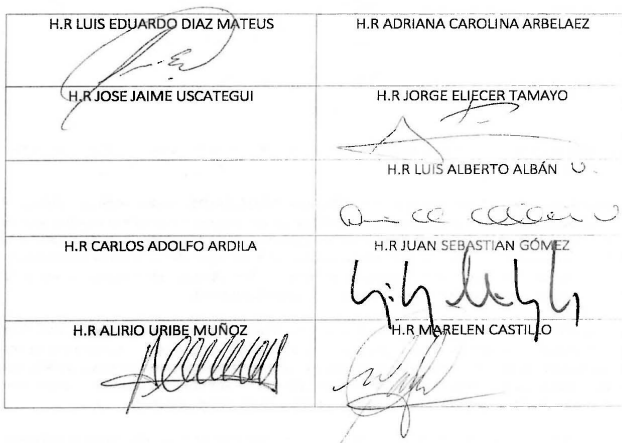 H.R LUIS EDUARDO DIAZ MATEUS
H.R ADRIANA CAROLINA ARBELAEZ
H.R JOSE JAIME USCATEGUI
H.R JORGE ELIECER TAMAYO
H.R LUIS ALBERTO ALBÁN U.
H.R CARLOS ADOLFO ARDILA
H.R JUAN SEBASTIAN GÓMEZ
H.R ALIRIO URIBE MUÑOZ
H.R MARELEN CASTILLO